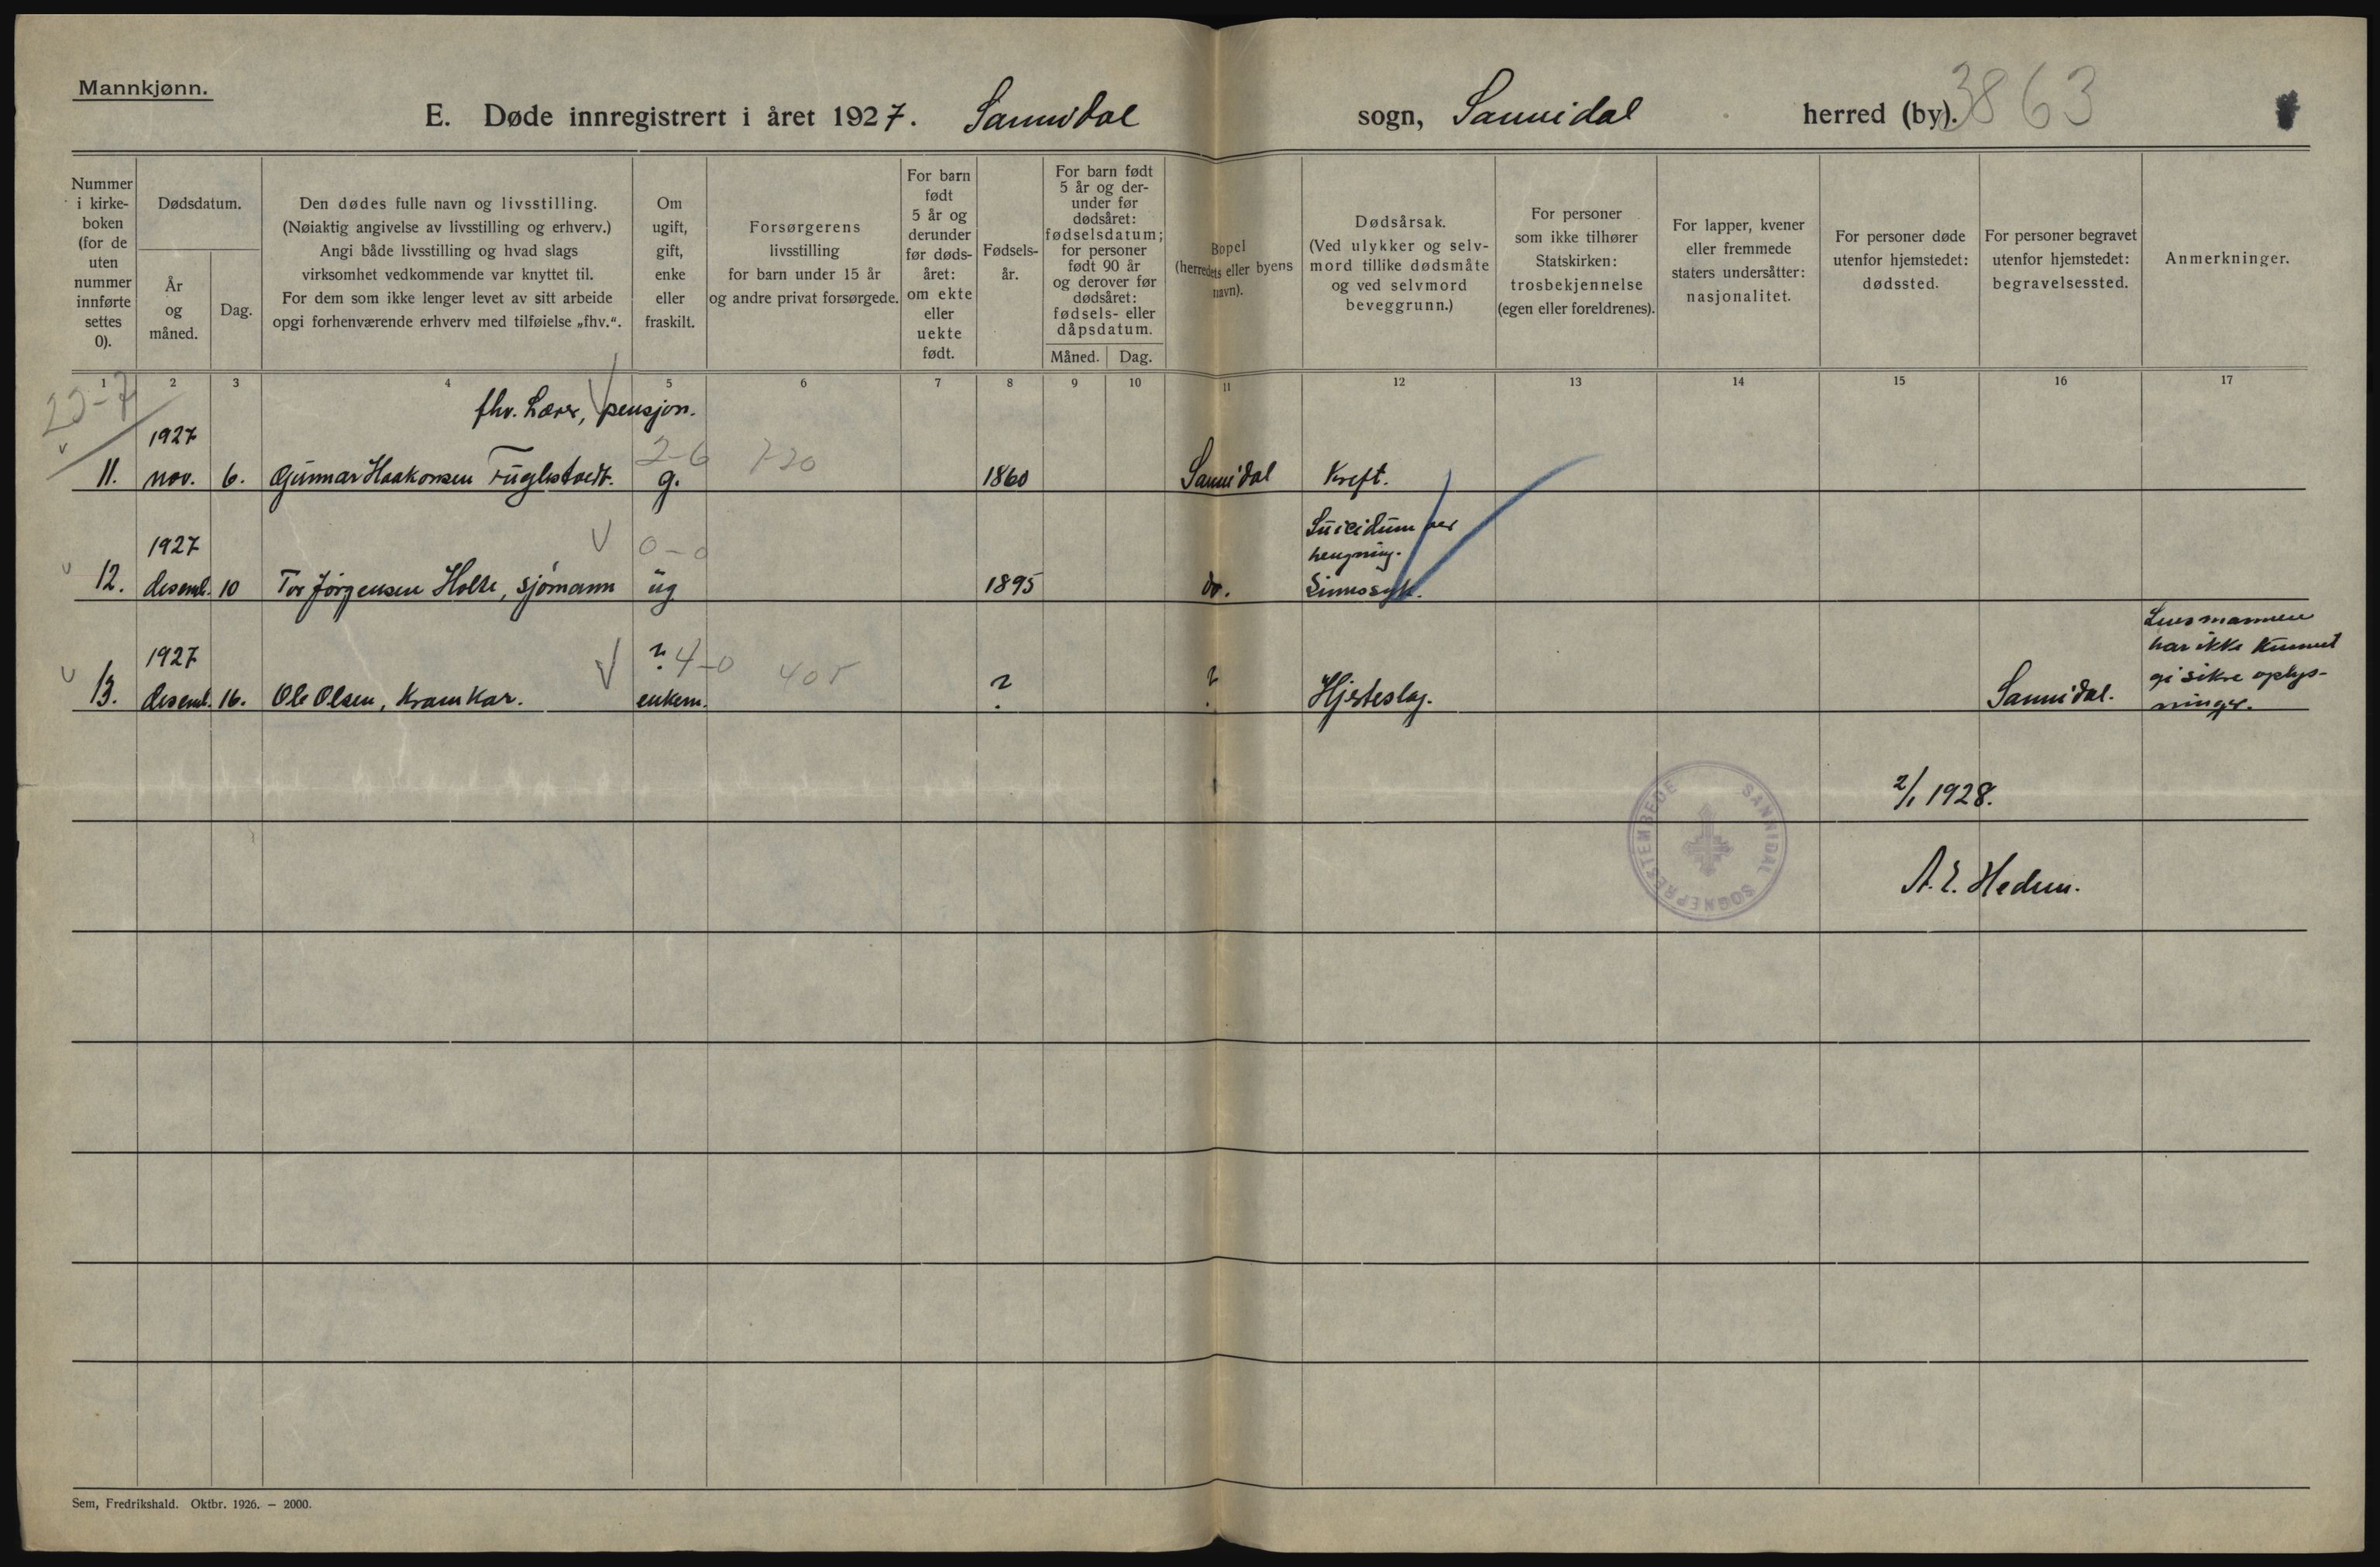 Mannkjønn.
E. Døde innregistrert i året 1927. Sannidal sogn, Sannidal herred (by). 3863
Nummer i kirke-boken (for de uten nummer innførte settes 0).
Dødsdatum.
År og måned.
Dag.
Den dødes fulle navn og livsstilling.
(Nøiaktig angivelse av livsstilling og erhverv.)
Angi både livsstilling og hvad slags
virksomhet vedkommende var knyttet til.
For dem som ikke lenger levet av sitt arbeide
opgi forhenværende erhverv med tilføielse „fhv.“.
Om ugift, gift, enke eller fraskilt.
Forsørgerens
livsstilling
for barn under 15 år
og andre privat forsørgede.
For barn født 5 år og derunder før døds-året: om ekte eller uekte født.
Fødsels-år.
For barn født 5 år og der-under før dødsåret: fødselsdatum; for personer født 90 år og derover før dødsåret: fødsels- eller dåpsdatum.
Måned. Dag.
Bopel
(herredets eller byens
navn).
Dødsårsak.
(Ved ulykker og selv-
mord tillike dødsmåte
og ved selvmord
beveggrunn.)
For personer
som ikke tilhører
Statskirken:
trosbekjennelse
(egen eller foreldrenes).
For lapper, kvener
eller fremmede
staters undersåtter:
nasjonalitet.
For personer døde
utenfor hjemstedet:
dødssted.
For personer begravet
utenfor hjemstedet:
begravelsessted.
Anmerkninger.
1 2 3 4 5 6 7 8 9 10 11 12 13 14 15 16 17
fhv. Lærer, pensjon.
1927
2-6 7-20
11. nov. 6. Gunnar Haakonsen Fuglestvedt. g. 1860 Sannidal Kreft.
1927 0-0 Suicidum ved
hengning.
12. desemb. 10 Tor Jørgensen Holte, sjømann ug 1895 do. Sinnssyk.
1927 ? 4-0 405
13. desemb. 16. Ole Olsen, Kramkar. enkem. ? ? Hjerteslag. Sannidal.
Lensmannen
har ikke kunnet
gi sikre oplys-
ninger.
2/1 1928.
SANNIDAL SOGNEPRESTEMBEDE
Sem, Fredrikshald. Oktbr. 1926. — 2000.